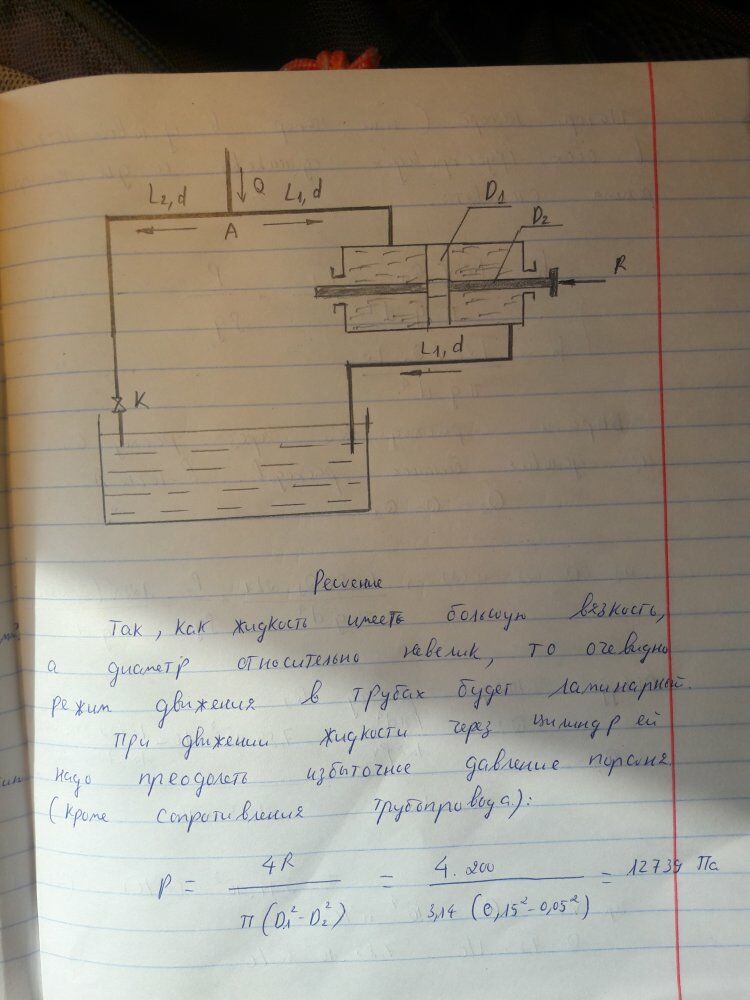 L2, d
Q
L1, d
A
D1
D2
R
L1, d
K
Решение
Так, как жидкость имееть большую вязкость,
а диаметр относительно невелик, то очевидно
режим движения в трубах будет ламинарный.
При движении жидкости через цилиндр ей
надо преодолеть избыточное давление порсня
(кроме сопротивления трубопровода):
P = 4R / π(D₁² - D₂²) = 4 · 200 / 3,14 (0,15² - 0,05²) = 12739 Па